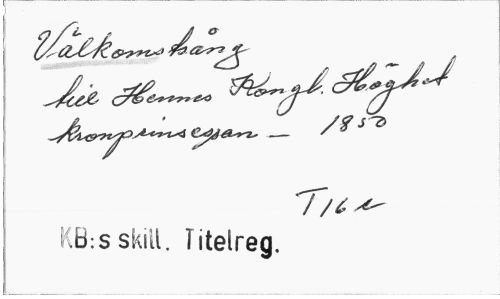 Välkomstsång
till Hennes Kongl. Höghet
kronprinsessan – 1850
T16 r
KB:s skill. Titelreg.